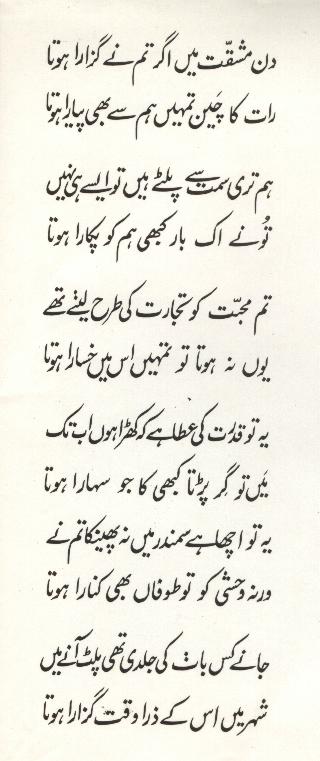 دن مشقّت میں اگر تم نے گزارا ہوتا
رات کا چَین تمہیں ہم سے بھی پیارا ہوتا
ہم تری سمت سے پلٹے ہیں تو ایسے ہی نہیں
تُو نے اک بار کبھی ہم کو پکارا ہوتا
تم محبّت کو تجارت کی طرح لیتے تھے
یوں نہ ہوتا تو تمہیں اس میں خسارا ہوتا
یہ تو قدرت کی عطا ہے کہ کھڑا ہوں اب تک
مَیں تو گِر پڑتا کبھی کا جو سہارا ہوتا
یہ تو اچھا ہے سمندر میں نہ پھینکا تم نے
ورنہ وحشی کو تو طوفاں بھی کنارا ہوتا
جانے کس بات کی جلدی تھی پلٹ آنے میں
شہر میں اس کے ذرا وقت گزارا ہوتا